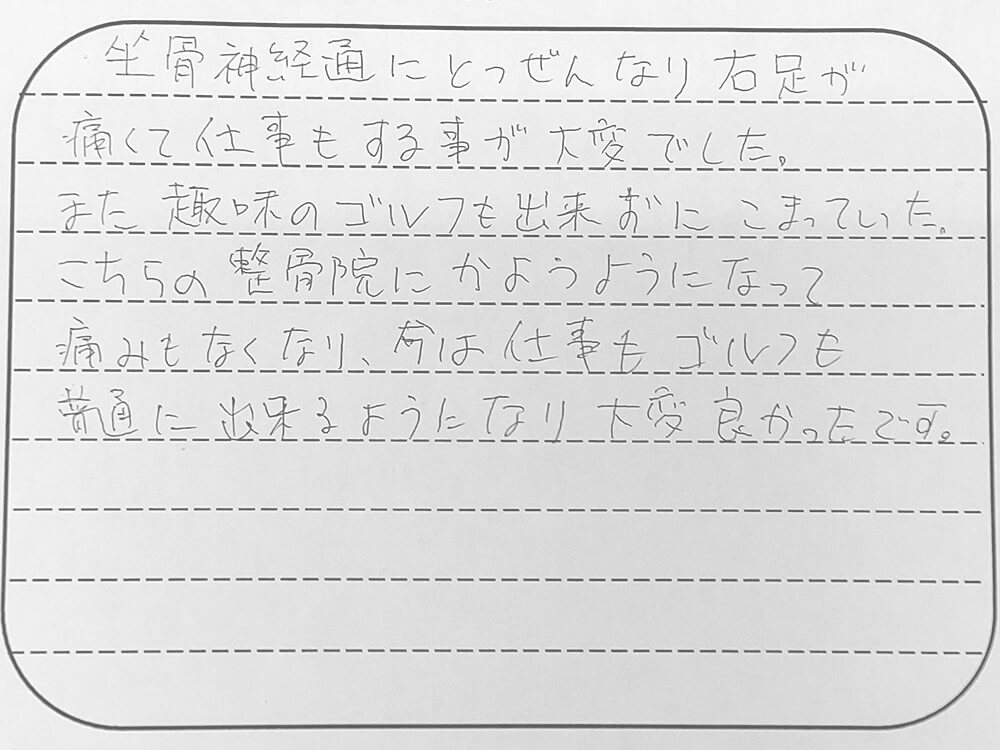 坐骨神経通にとつぜんなり右足が
痛くて仕事もする事が大変でした。
また趣味のゴルフも出来ずにこまっていた。
こちらの整骨院にかようようになって
痛みもなくなり、今は仕事もゴルフも
普通に出来るようになり大変良かったです。